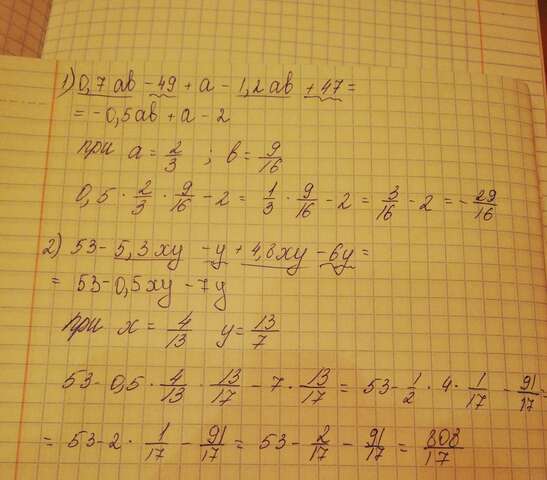 1) 0,7ав - 49 + а - 1,2ав + 47 =
= -0,5ав + а - 2
при а = 2/3 ; в = 9/16
0,5 · 2/3 · 9/16 - 2 = 1/3 · 9/16 - 2 = 3/16 - 2 = - 29/16
2) 53 - 5,3ху - у + 4,8ху - 6у =
= 53 - 0,5ху - 7у
при х = 4/13 у = 13/7
53 - 0,5 · 4/13 · 13/17 - 7 · 13/17 = 53 - 1/2 · 4 · 1/17 - 91/17 =
= 53 - 2 · 1/17 - 91/17 = 53 - 2/17 - 91/17 = 808/17